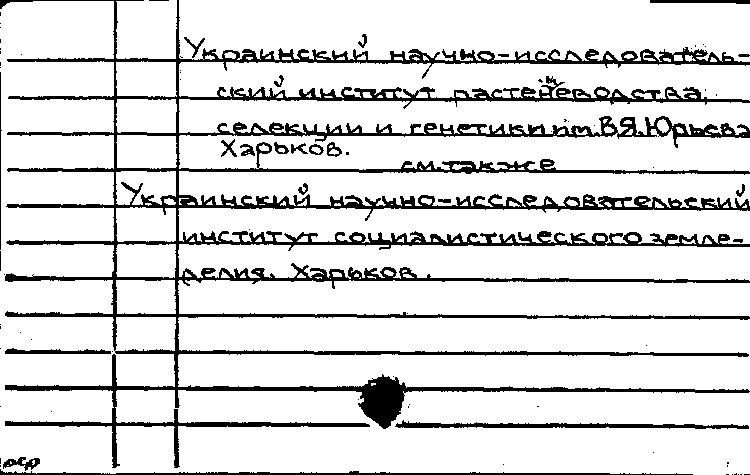 Украинский научно-исследователь-
ский институт растениеводства,
селекции и генетики им. В.Я.Юрьева
Харьков.
см. также
Украинский научно-исследовательский
институт социалистического земле-
делия. Харьков.